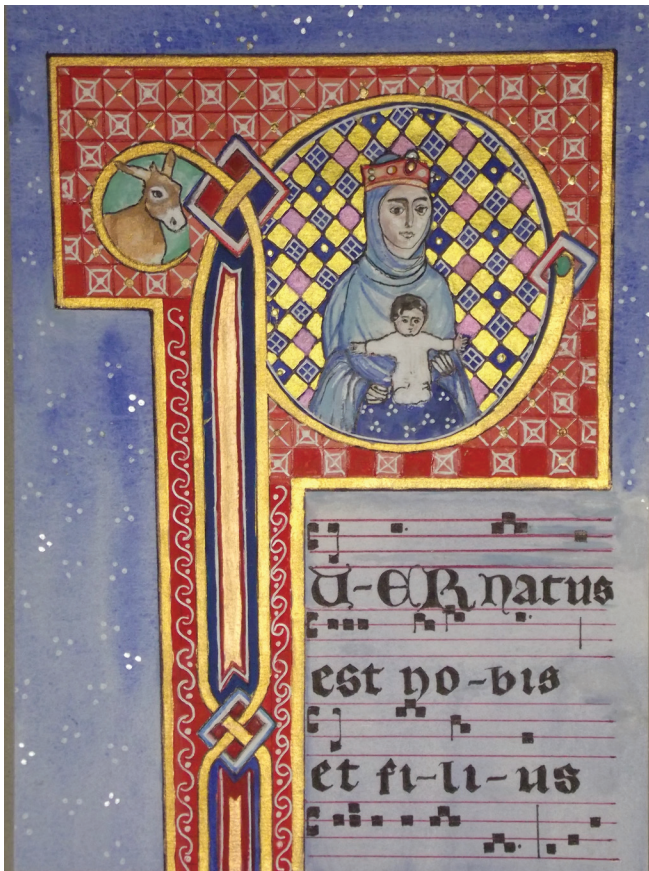 PU-ER natus
est no-bis
et fi-li-us